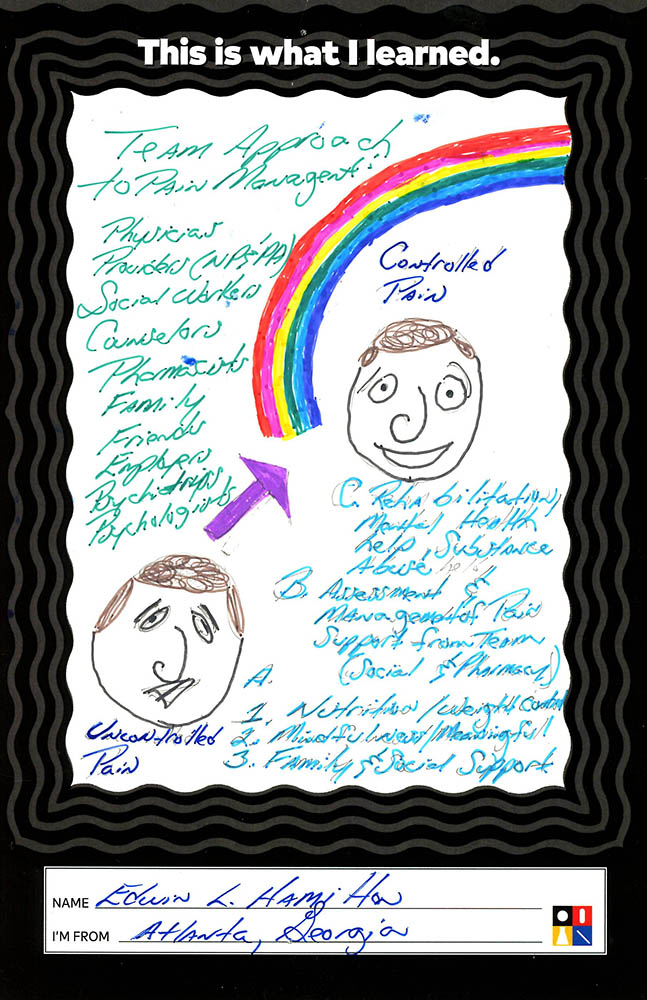 This is what I learned.
Team Approach
to Pain Managent:
Physicians
Providers (NPs'PA)
Social Workers
Counselors
Pharmacists
Family
Friends
Employers
Psychiatrists
Psychologists
Controlled
Pain
C. Rehabilitation,
Mental Health
help, Substance
Abuse help
B. Assessment &
Management of Pain
Support from Team
(Social & Pharmacy)
A.
1. Nutrition/Weight Control
2. Mindfulness/Meaningful
3. Family & Social Support
Uncontrolled
Pain
NAME Edwin L. Hamilton
I'M FROM Atlanta, Georgia